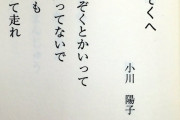 ぞくへ
小川 陽子
ぞくとかいって
ってないで
も
て走れ